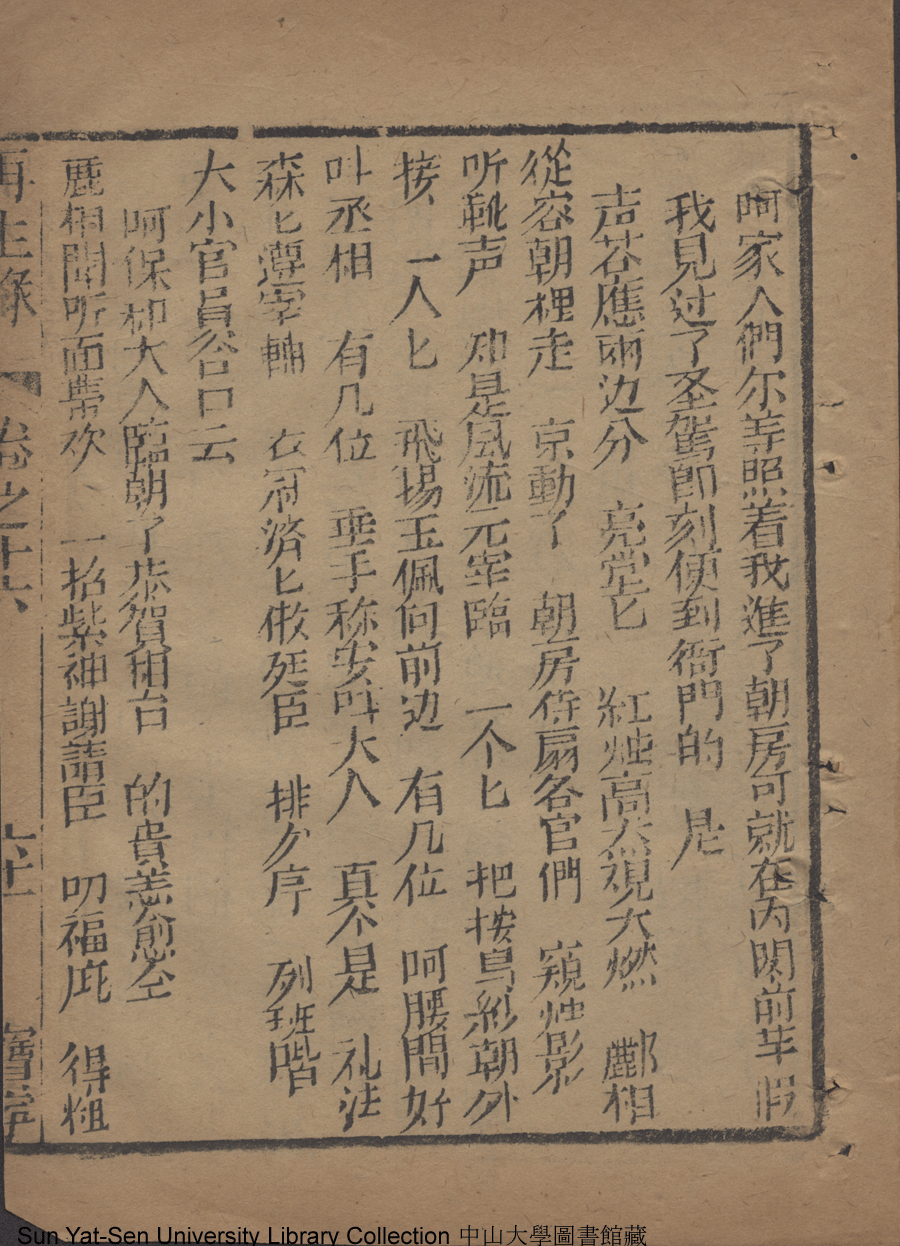 呵家人們尔等照着我進了朝房可就在內閣前等假
我見过了圣駕即刻便到衙門的　是
声荅應兩边分　亮堂匕　紅烛高照視大燃　酈相
從容朝裡走　京動了　朝房待扇各官們　窺烛影
听靴声　却是風流元宰臨　一个匕　把按烏紗朝外
接　一人匕　飛揚玉佩向前边　有几位　呵腰間好
叫丞相　有几位　垂手称安叫大人　真个是　礼法
森匕潭宰輔　衣冠濟匕做廷臣　排分序　列班階
大小官員谷口云
呵保和大人臨朝了恭賀相台　的貴恙愈全
鹿相聞听面帶欢　一招紫神謝諸臣　叨福庇　得粗
再生錄　卷之十六
Sun Yat-Sen University Library Collection 中山大學圖書館藏